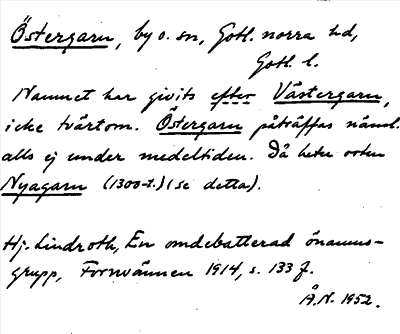 Östergarn, by o. sn, Gotl. norra hd,
Gotl. l.
Namnet har givits efter Västergarn,
icke tvärtom. Östergarn påträffas näml.
alls ej under medeltiden. Då heter orten
Nyagarn (1300-t.) (se detta).
Hj. Lindroth, En omdebatterad önamns-
grupp, Fornvännen 1914, s. 133 f.
Å.N. 1952.